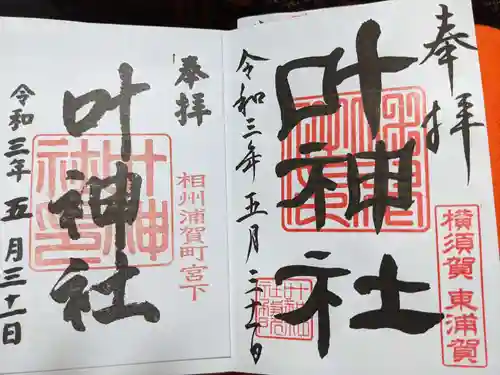 奉拝
横須賀 東浦賀
叶神社
令和三年五月三十一日
奉拝
相州浦賀町宮下
叶神社
叶神社印
令和三年五月三十一日